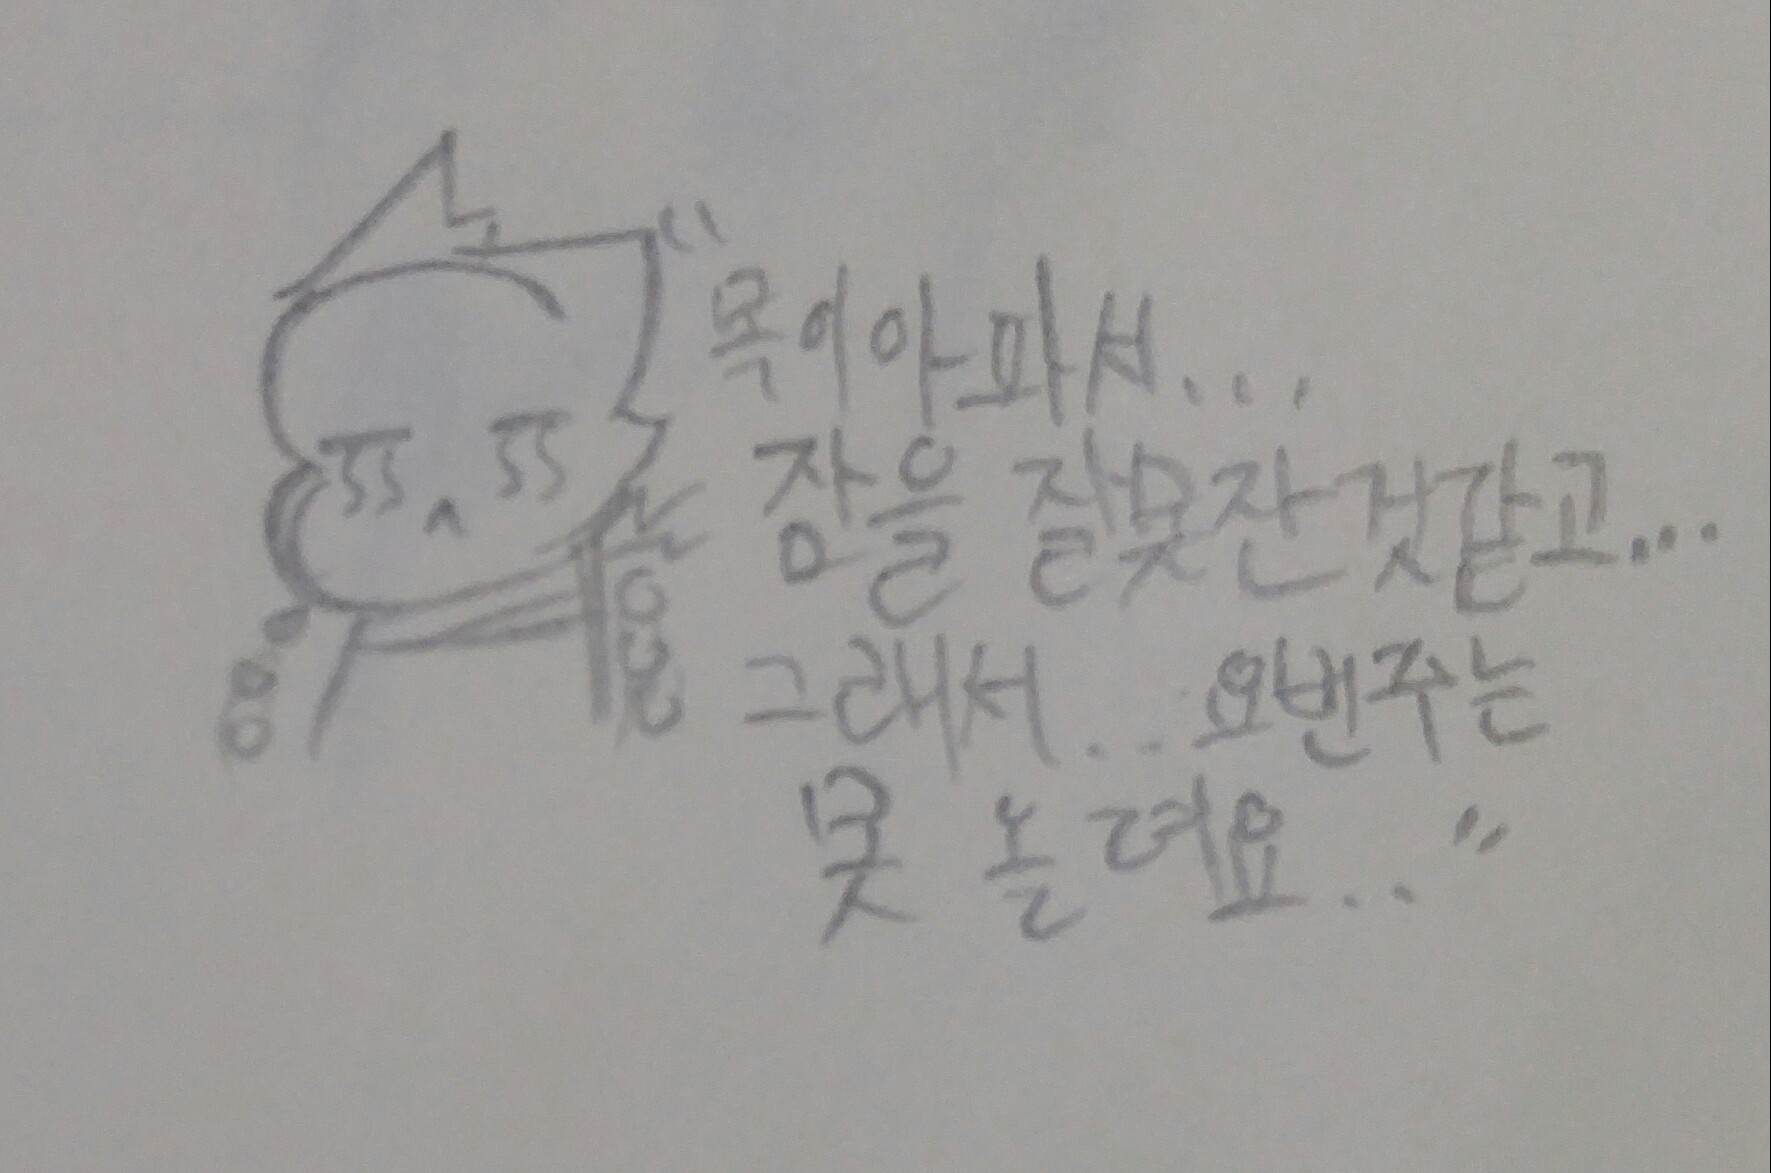 "목이아파서...
잠을 잘못잔것같고...
그래서... 요번주는
못 놀려요.."